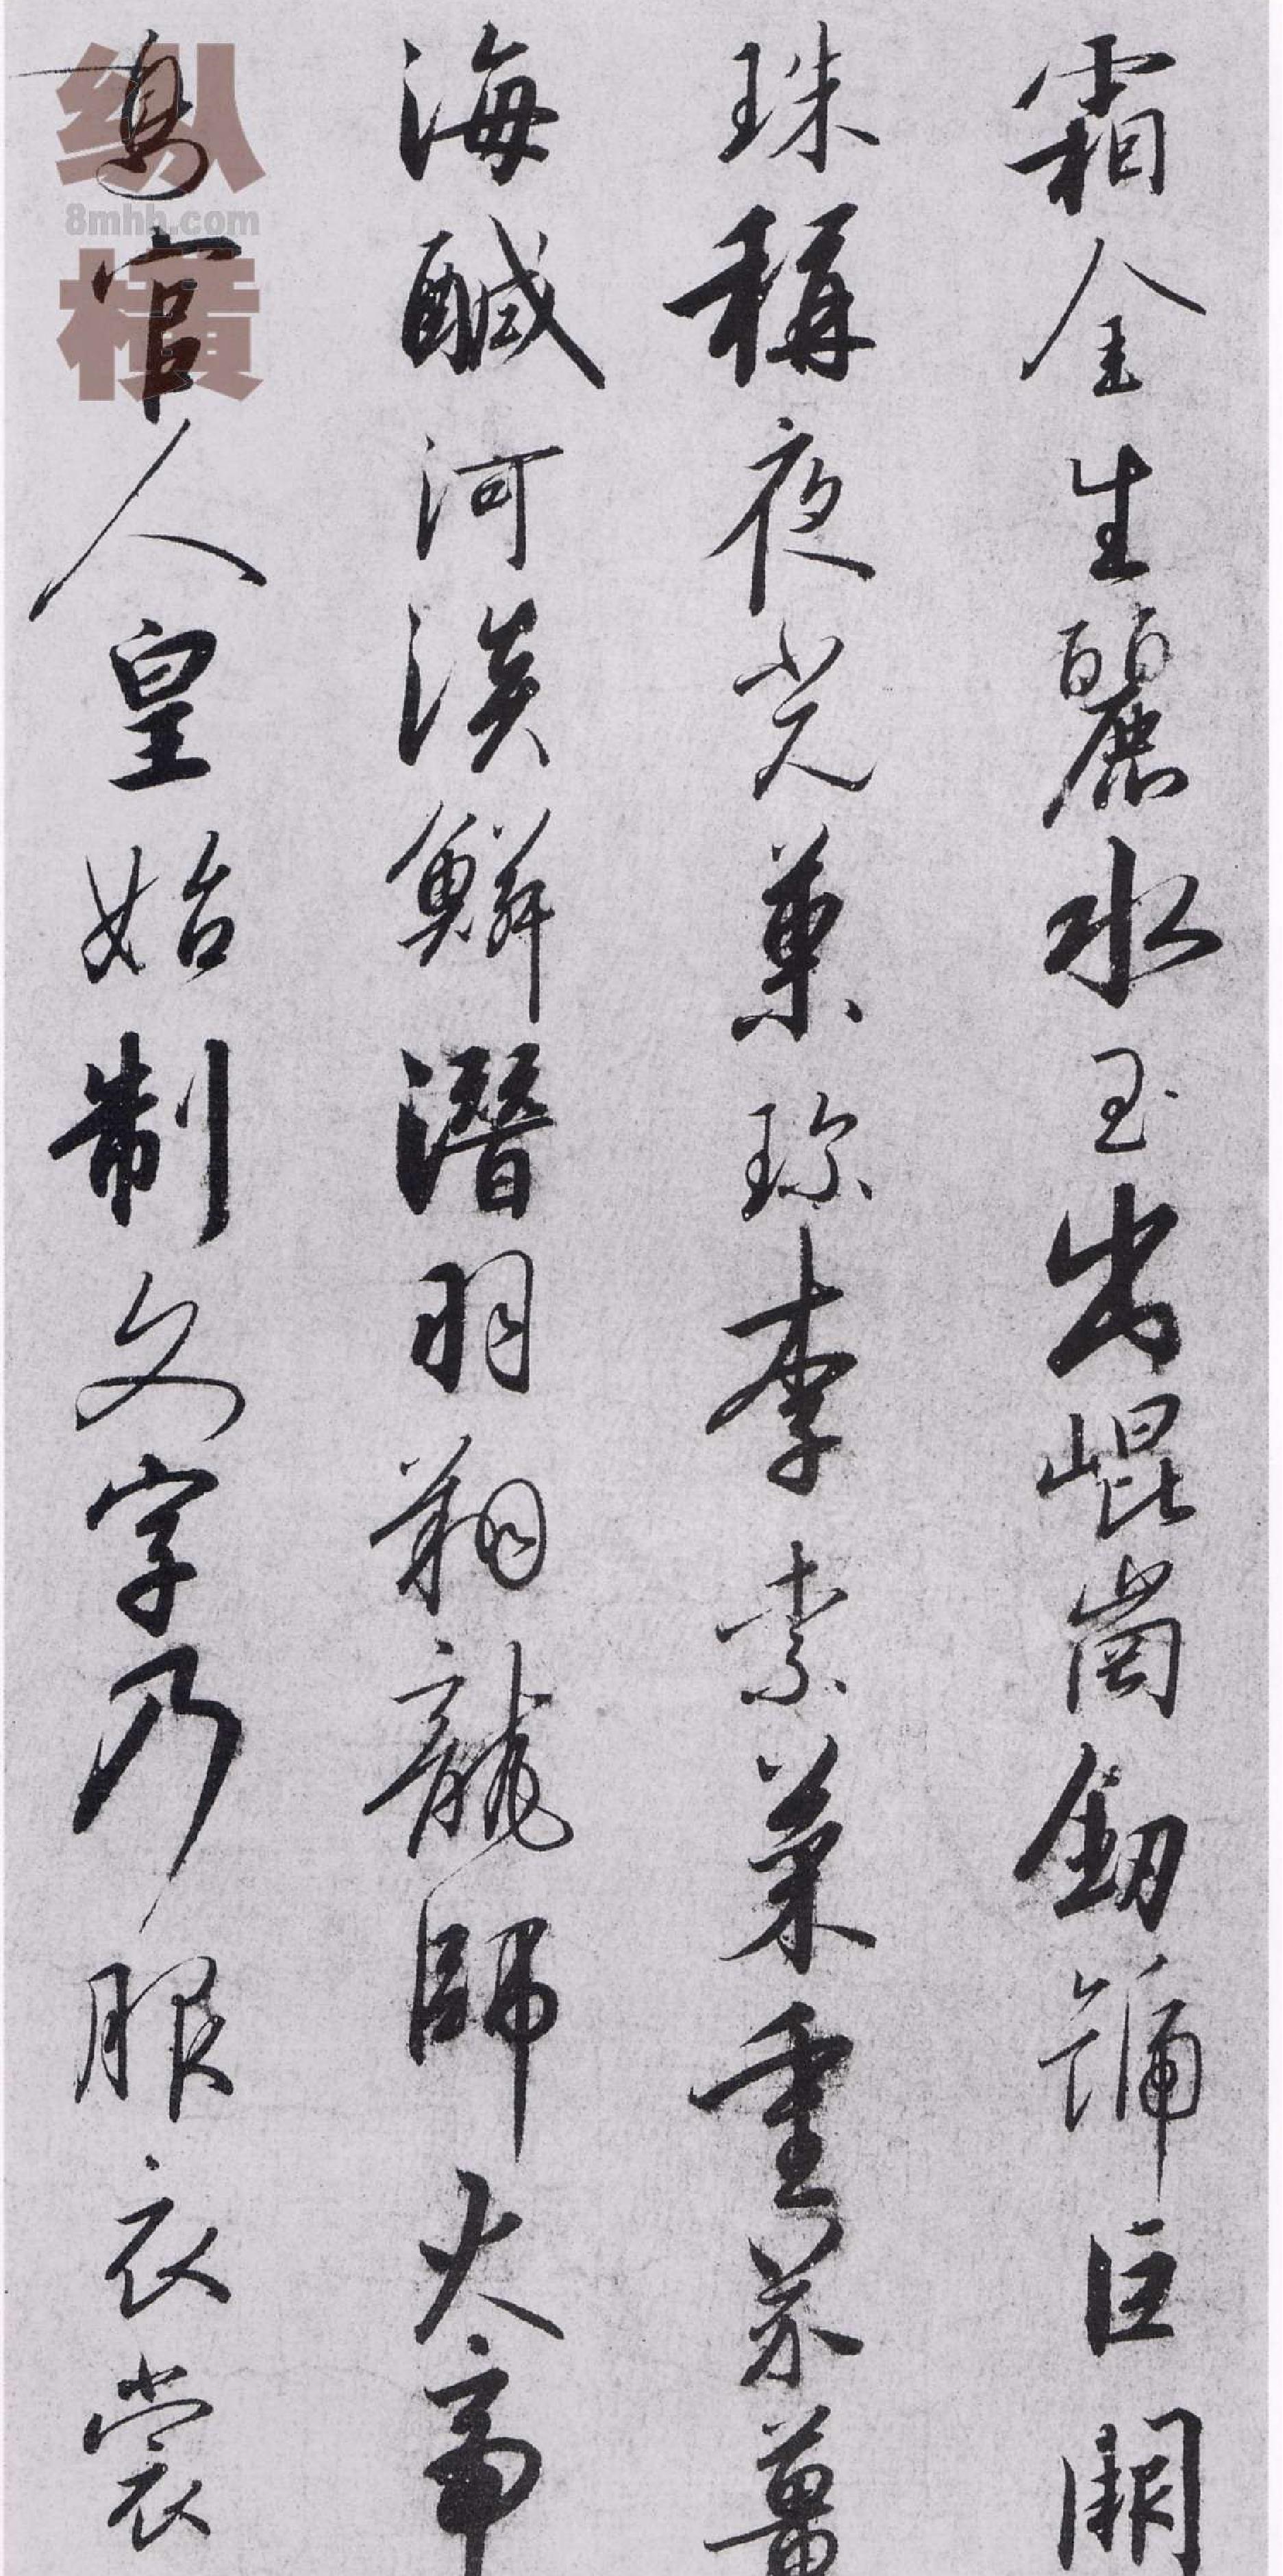 霜金生麗水玉出崐崗劒號巨闕
珠稱夜光菓珎李柰菜重芥薑
海醎河淡鱗潛羽翔龍師火帝
鳥官人皇始制文字乃服衣裳
纵横
8mhh.com